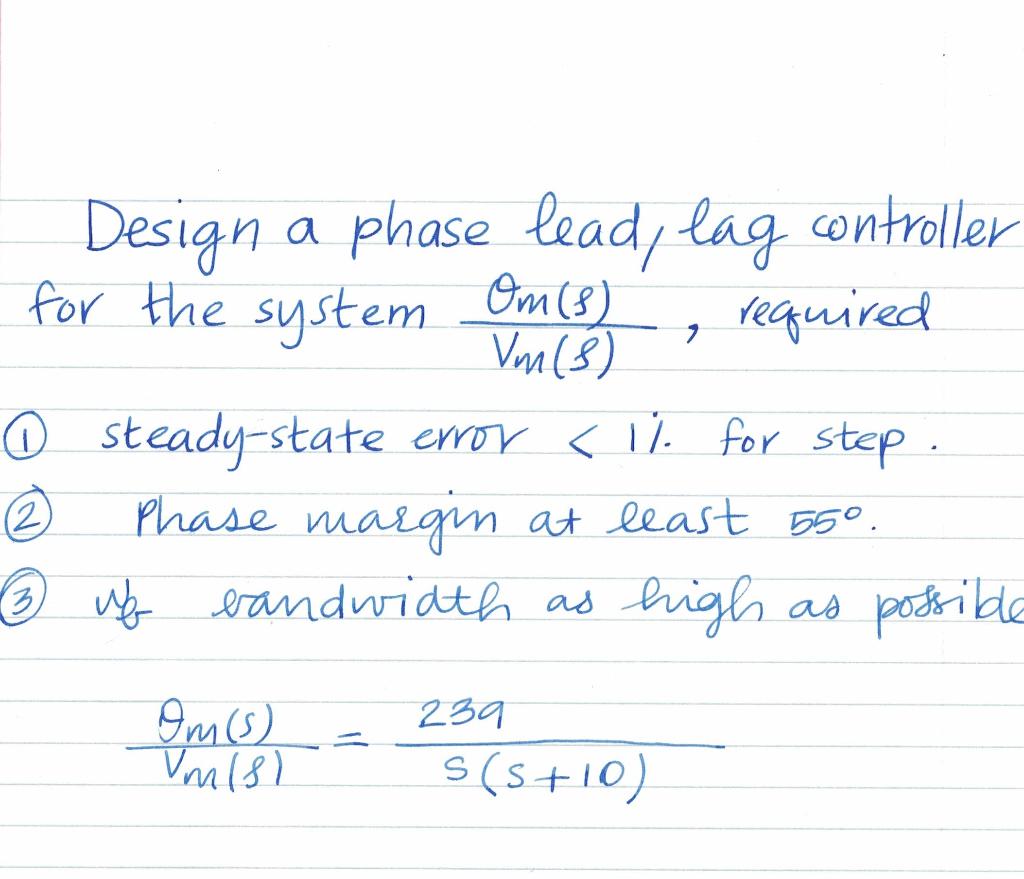 Design a phase lead, lag controller
for the system θm(s)/Vm(s), required
① steady-state error < 1% for step.
② Phase margin at least 55°.
③ wb bandwidth as high as possible
θm(s)/Vm(s) = 239/s(s+10)